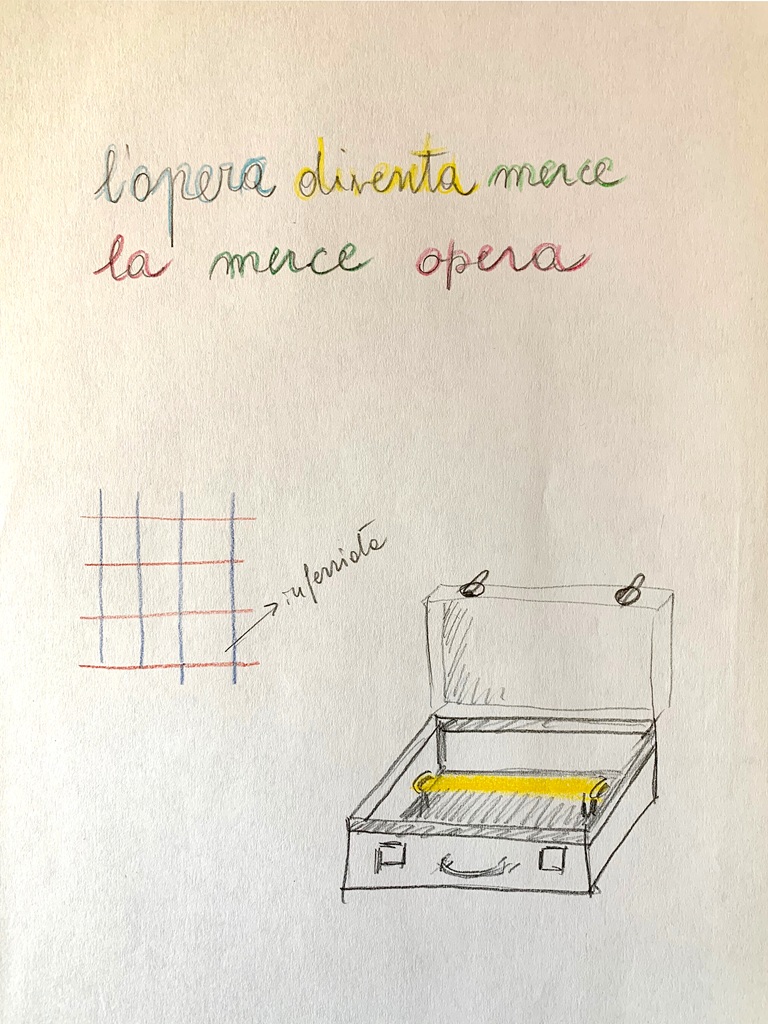 l'opera diventa merce
la merce opera
inferriata